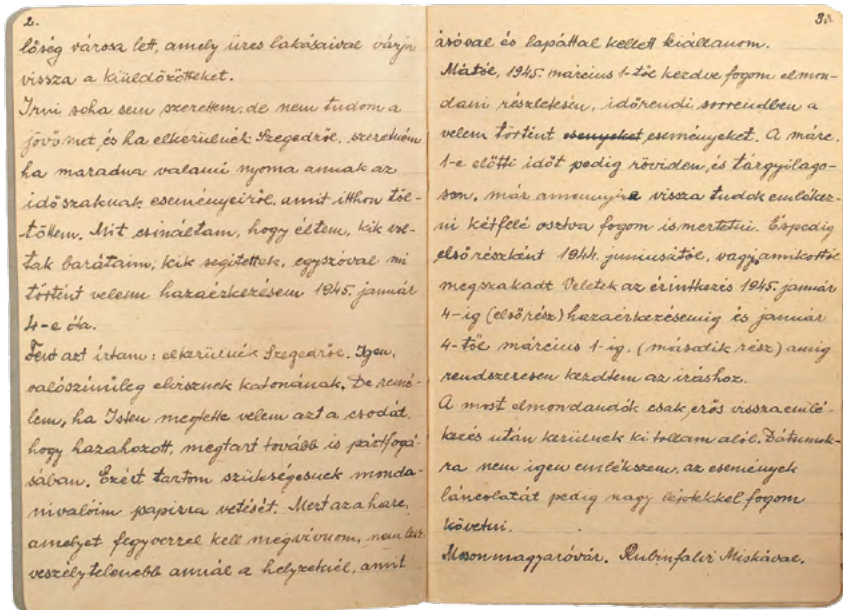 2.
lőség városa lett, amely üres lakásaival várja
vissza a kiüldözötteket.
Irni soha sem szerettem, de nem tudom a
jövőmet, és ha elkerülnék Szegedről, szeretném
ha maradna valami nyoma annak az
időszaknak eseményeiről, amit itthon töl-
töttem. Mit csináltam, hogy éltem, kik vol-
tak barátaim, kik segítettek, egyszóval mi
történt velem hazaérkezésem 1945. január
4-e óta.
Fent azt írtam: elkerülnék Szegedről. Igen,
valószinüleg elvisznek katonának. De remé-
lem, ha Isten megtette velem azt a csodát,
hogy hazahozott, megtart tovább is pártfogá-
sában. Ezért tartom szükségesnek monda-
nivalóim papirra vetését. Mert az a harc,
amelyet fegyverrel kell megvívnom, nem lesz
veszélytelenebb annál a helyzetnél, amit
3.
ásóval és lapáttal kellett kiállanom.
Mától, 1945. március 1-től kezdve fogom elmon-
dani részletesen, időrendi sorrendben a
velem történt eseményeket. A márc.
1-e előtti időt pedig röviden, és tárgyilago-
son, már amennyire vissza tudok emlékez-
ni kétfelé osztva fogom ismertetni. Éspedig
első részként 1944. juniusától, vagy amikortól
megszakadt Veletek az érintkezés 1945. január
4-ig (első rész) hazaérkezésemig és január
4-től március 1-ig. (második rész) amig
rendszeresen kezdtem az iráshoz.
A most elmondandók csak erős visszaemlé-
kezés után kerülnek ki tollam alól. Dátumok-
ra nem igen emlékszem, az események
láncolatát pedig nagy lépésekkel fogom
követni.
Mosonmagyaróvár. Rubinfalvi Miskával.